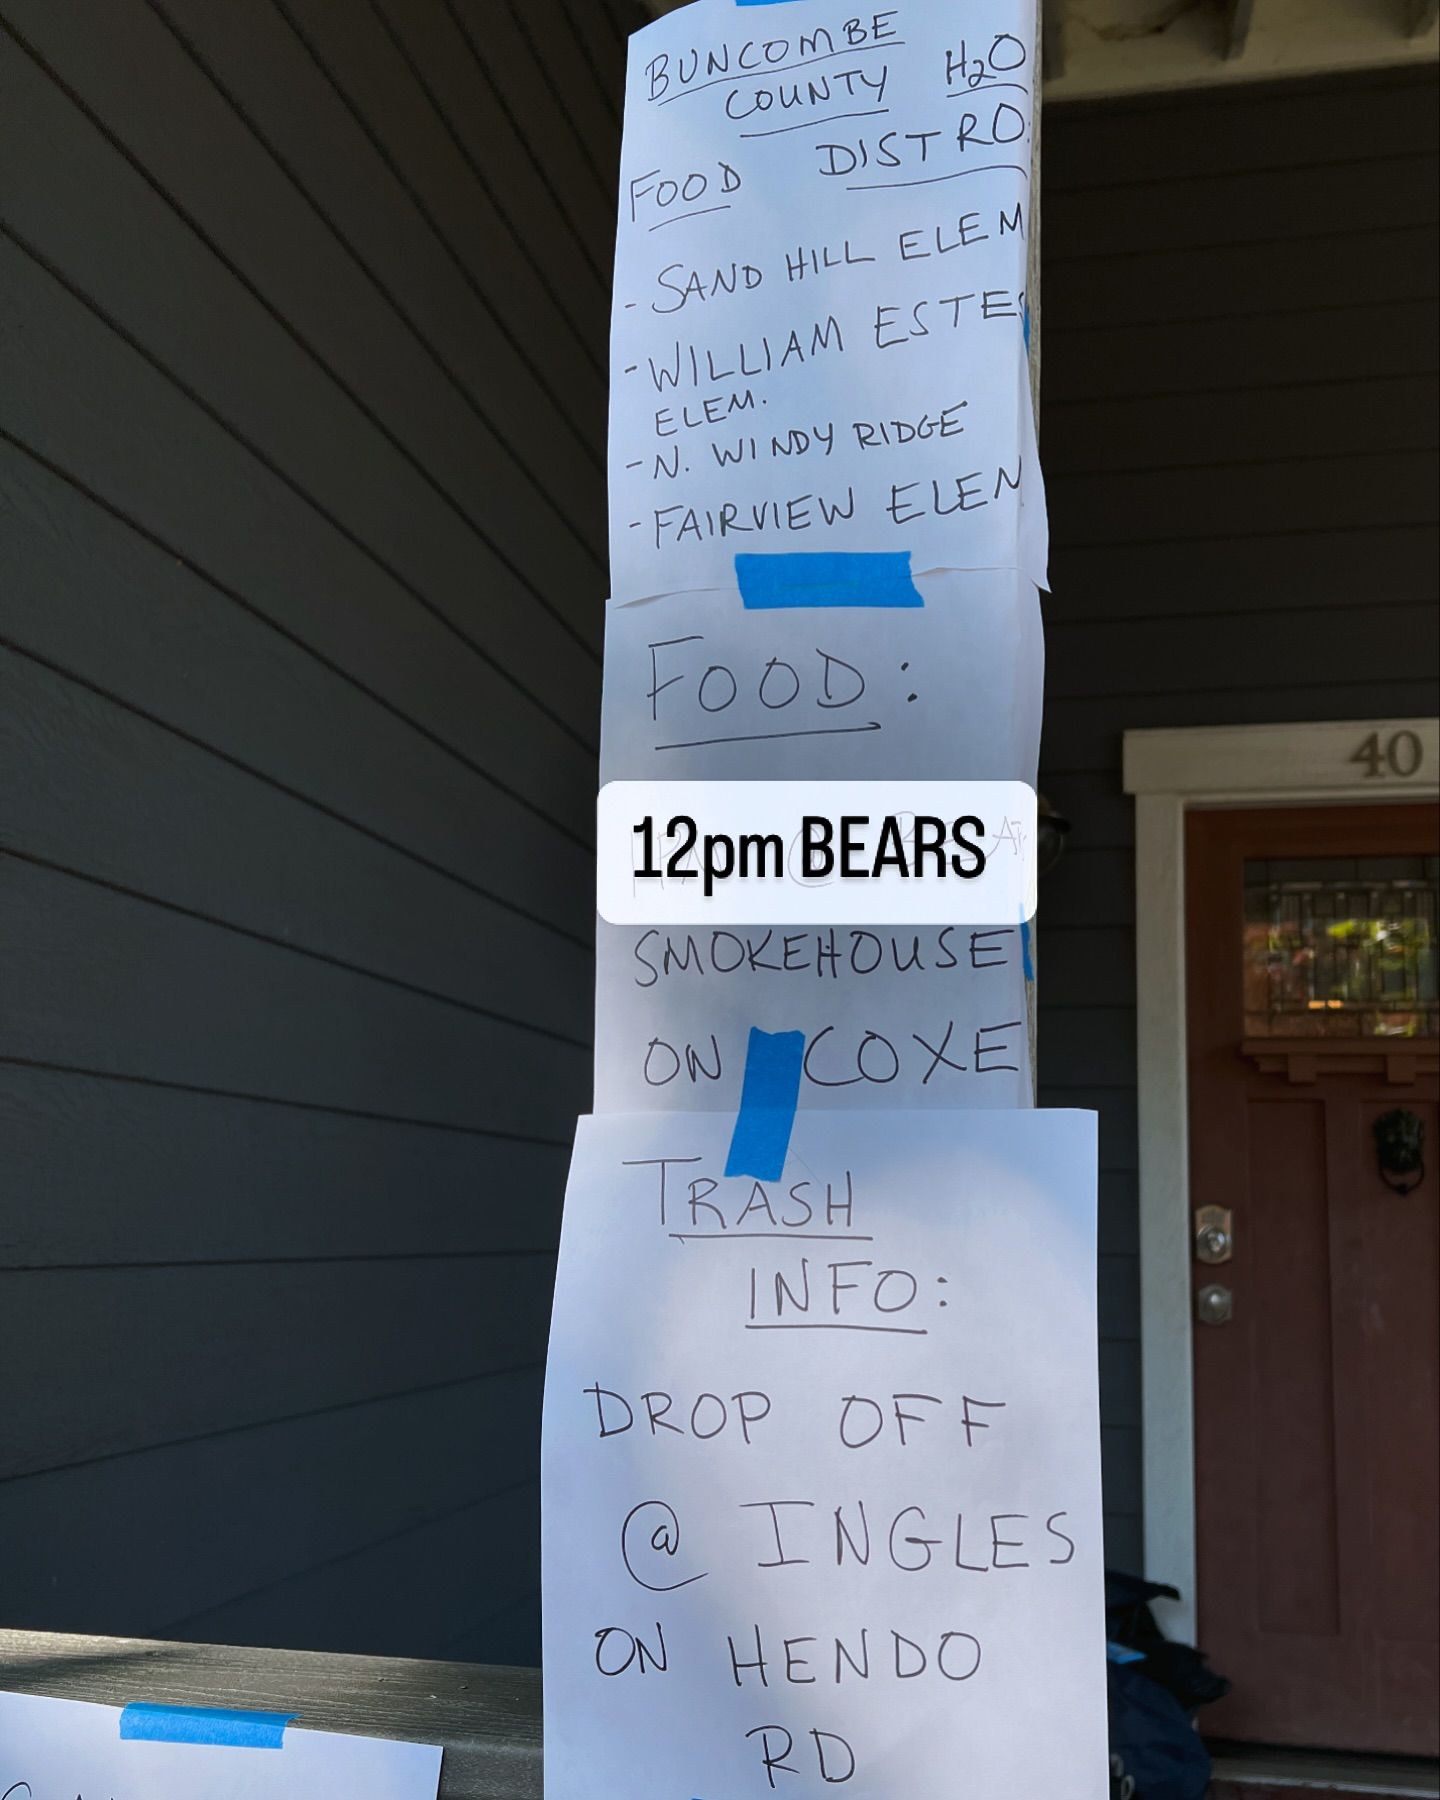 BUNCOMBE
COUNTY H₂O
FOOD DISTRO.
- SAND HILL ELEM
- WILLIAM ESTES
ELEM.
- N. WINDY RIDGE
- FAIRVIEW ELEM
FOOD:
12pm BEARS
SMOKEHOUSE
ON COXE
TRASH
INFO:
DROP OFF
@ INGLES
ON HENDO
RD
40